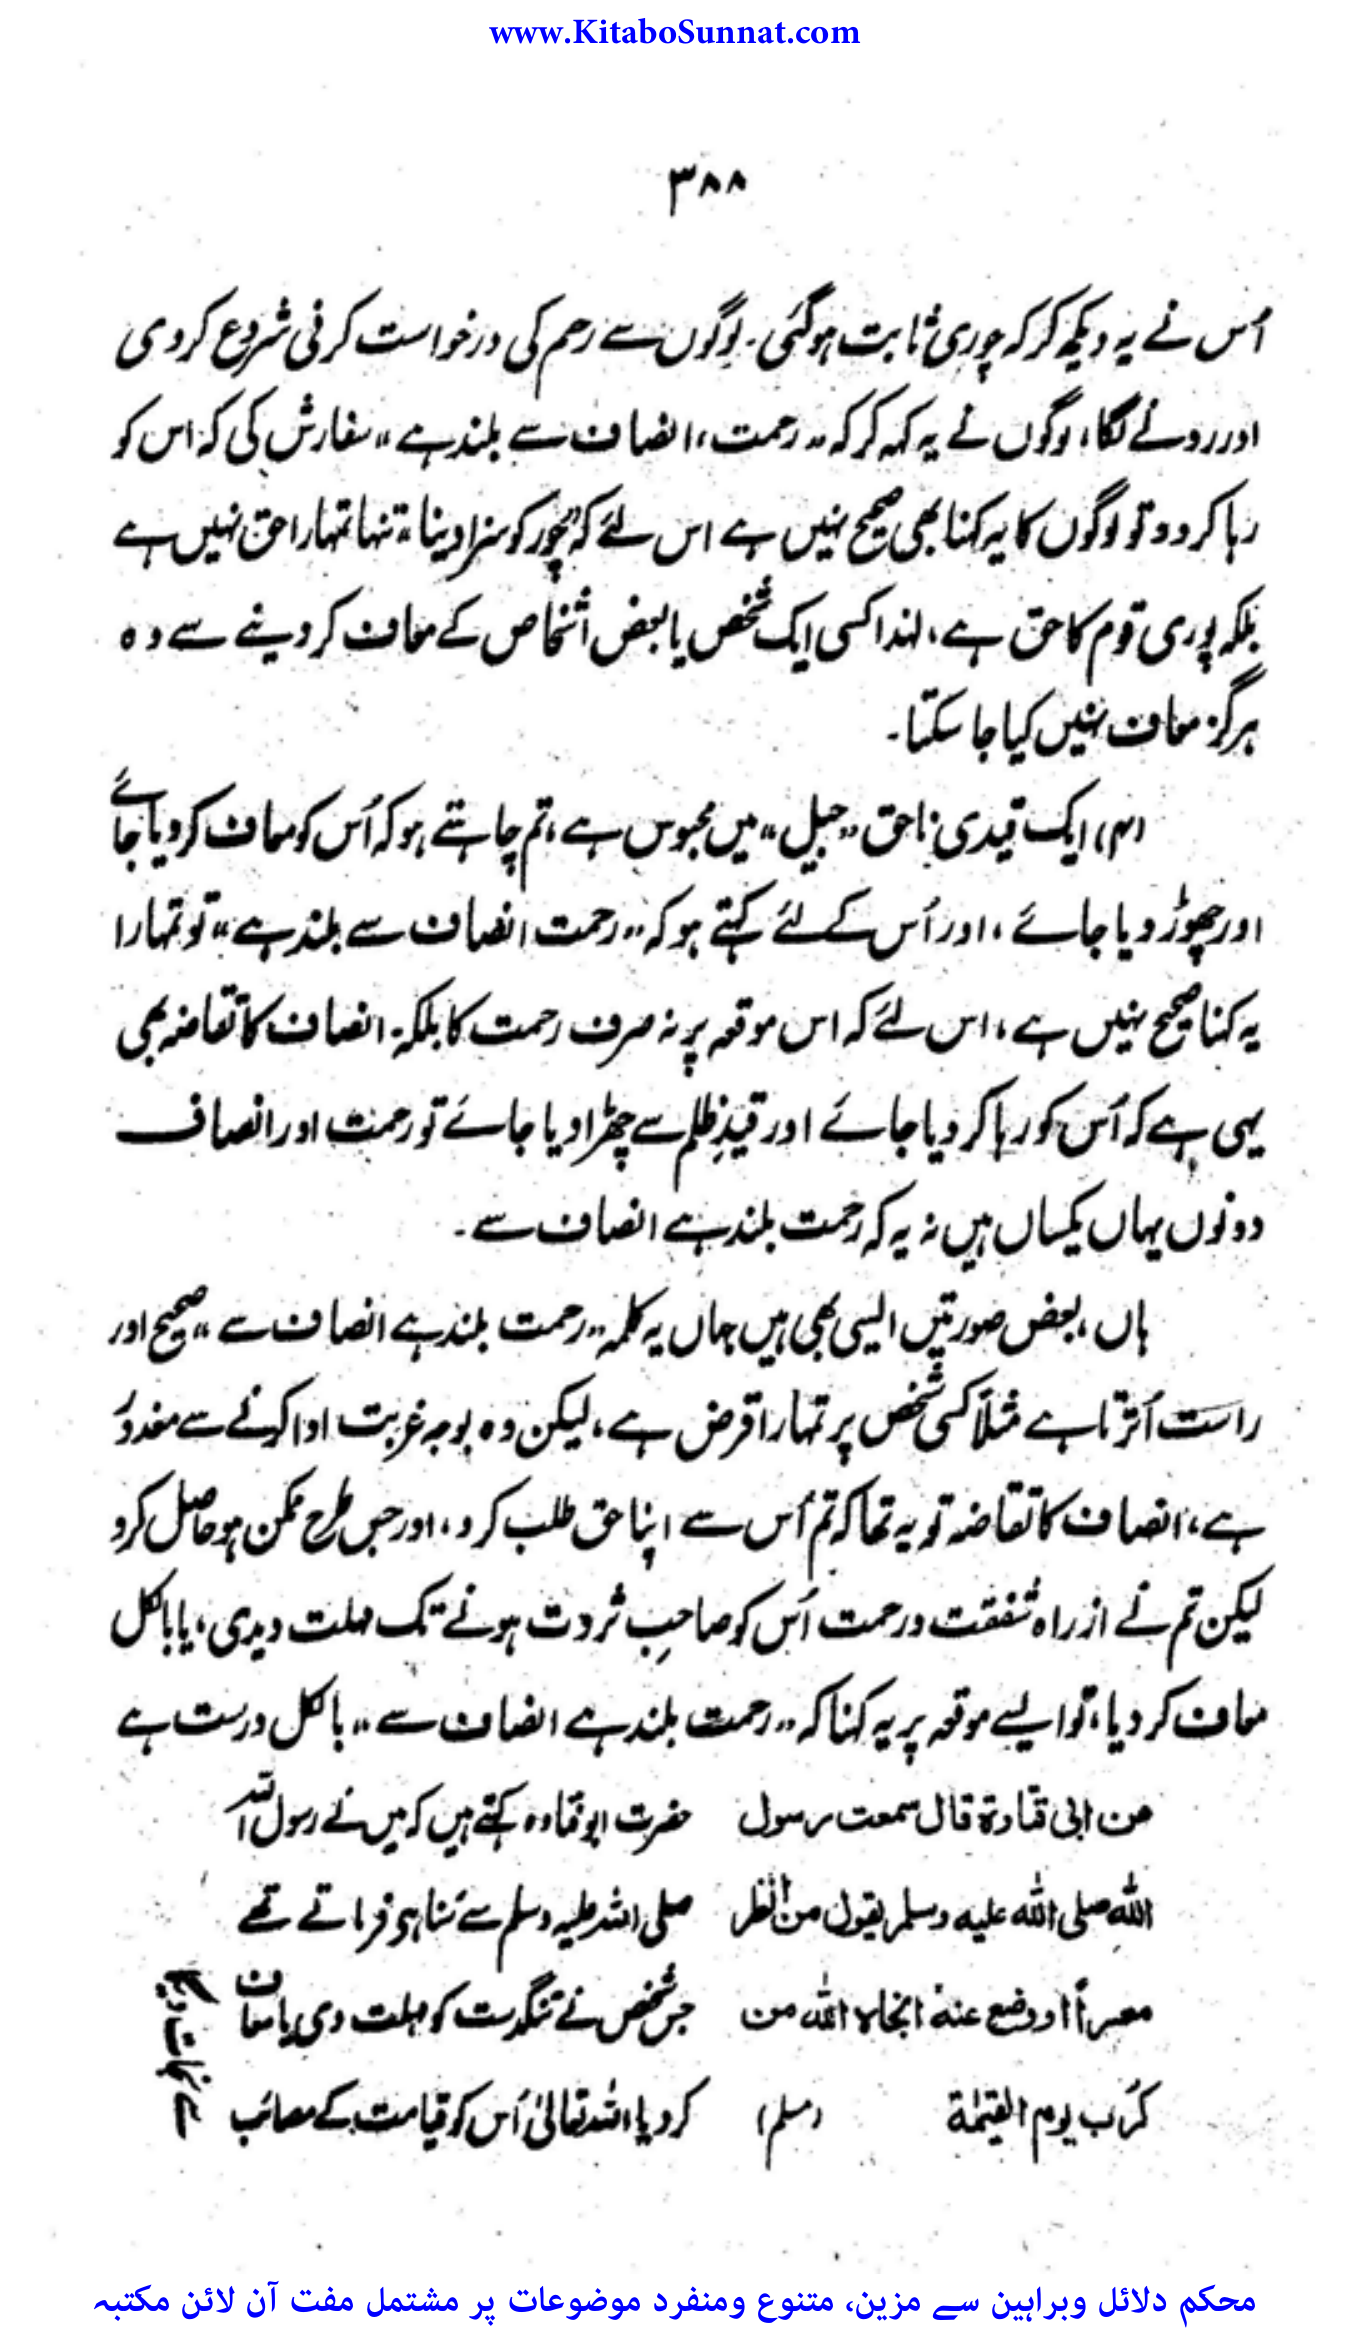 www.KitaboSunnat.com
۳۸۸
اُس نے یہ دیکھ کر کہ چوری ثابت ہوگئی۔ لوگوں سے رحم کی درخواست کرنی شروع کر دی
اور رونے لگا، لوگوں نے یہ کہہ کر کہ ”رحمت، انصاف سے بلند ہے“ سفارش کی کہ اس کو
رہا کر دو تو لوگوں کا یہ کہنا بھی صحیح نہیں ہے اس لئے کہ ”چور کو سزا دینا“ تنہا تمہارا حق نہیں ہے
بلکہ پوری قوم کا حق ہے، لہٰذا کسی ایک شخص یا بعض اشخاص کے معاف کر دینے سے وہ
ہرگز معاف نہیں کیا جا سکتا۔
(۴) ایک قیدی ناحق ”جیل“ میں محبوس ہے، تم چاہتے ہو کہ اُس کو معاف کر دیا جائے
اور چھوڑ دیا جائے، اور اُس کے لئے کہتے ہو کہ ”رحمت انصاف سے بلند ہے“ تو تمہارا
یہ کہنا صحیح نہیں ہے، اس لئے کہ اس موقعہ پر نہ صرف رحمت کا بلکہ انصاف کا تقاضہ بھی
یہی ہے کہ اُس کو رہا کر دیا جائے اور قیدِ ظلم سے چھڑا دیا جائے تو رحمت اور انصاف
دونوں یہاں یکساں ہیں نہ یہ کہ رحمت بلند ہے انصاف سے۔
ہاں، بعض صورتیں ایسی بھی ہیں جہاں یہ کلمہ ”رحمت بلند ہے انصاف سے“ صحیح اور
راست اُترتا ہے مثلاً کسی شخص پر تمہارا قرض ہے، لیکن وہ بوجہ غربت ادا کرنے سے معذور
ہے، انصاف کا تقاضہ تو یہ تھا کہ تم اُس سے اپنا حق طلب کرو، اور جس طرح ممکن ہو حاصل کرو
لیکن تم نے از راہ شفقت و رحمت اُس کو صاحبِ ثروت ہونے تک مہلت دیدی، یا بالکل
معاف کر دیا، تو ایسے موقعہ پر یہ کہنا کہ ”رحمت بلند ہے انصاف سے“ بالکل درست ہے
عن ابی قتادة قال سمعت رسول
الله صلی الله علیه وسلم یقول من انظر
معسراً او وضع عنه انجاه الله من
کُرَب یوم القیٰمة (مسلم)
حضرت ابو قتادہ کہتے ہیں کہ میں نے رسول اللہ
صلی اللہ علیہ وسلم سے سُنا ہو فرماتے تھے
جس شخص نے تنگدست کو مہلت دی یا معاف
کر دیا اللہ تعالیٰ اُس کو قیامت کے مصائب
سے نجات دیگا
محکم دلائل وبراہین سے مزین، متنوع ومنفرد موضوعات پر مشتمل مفت آن لائن مکتبہ